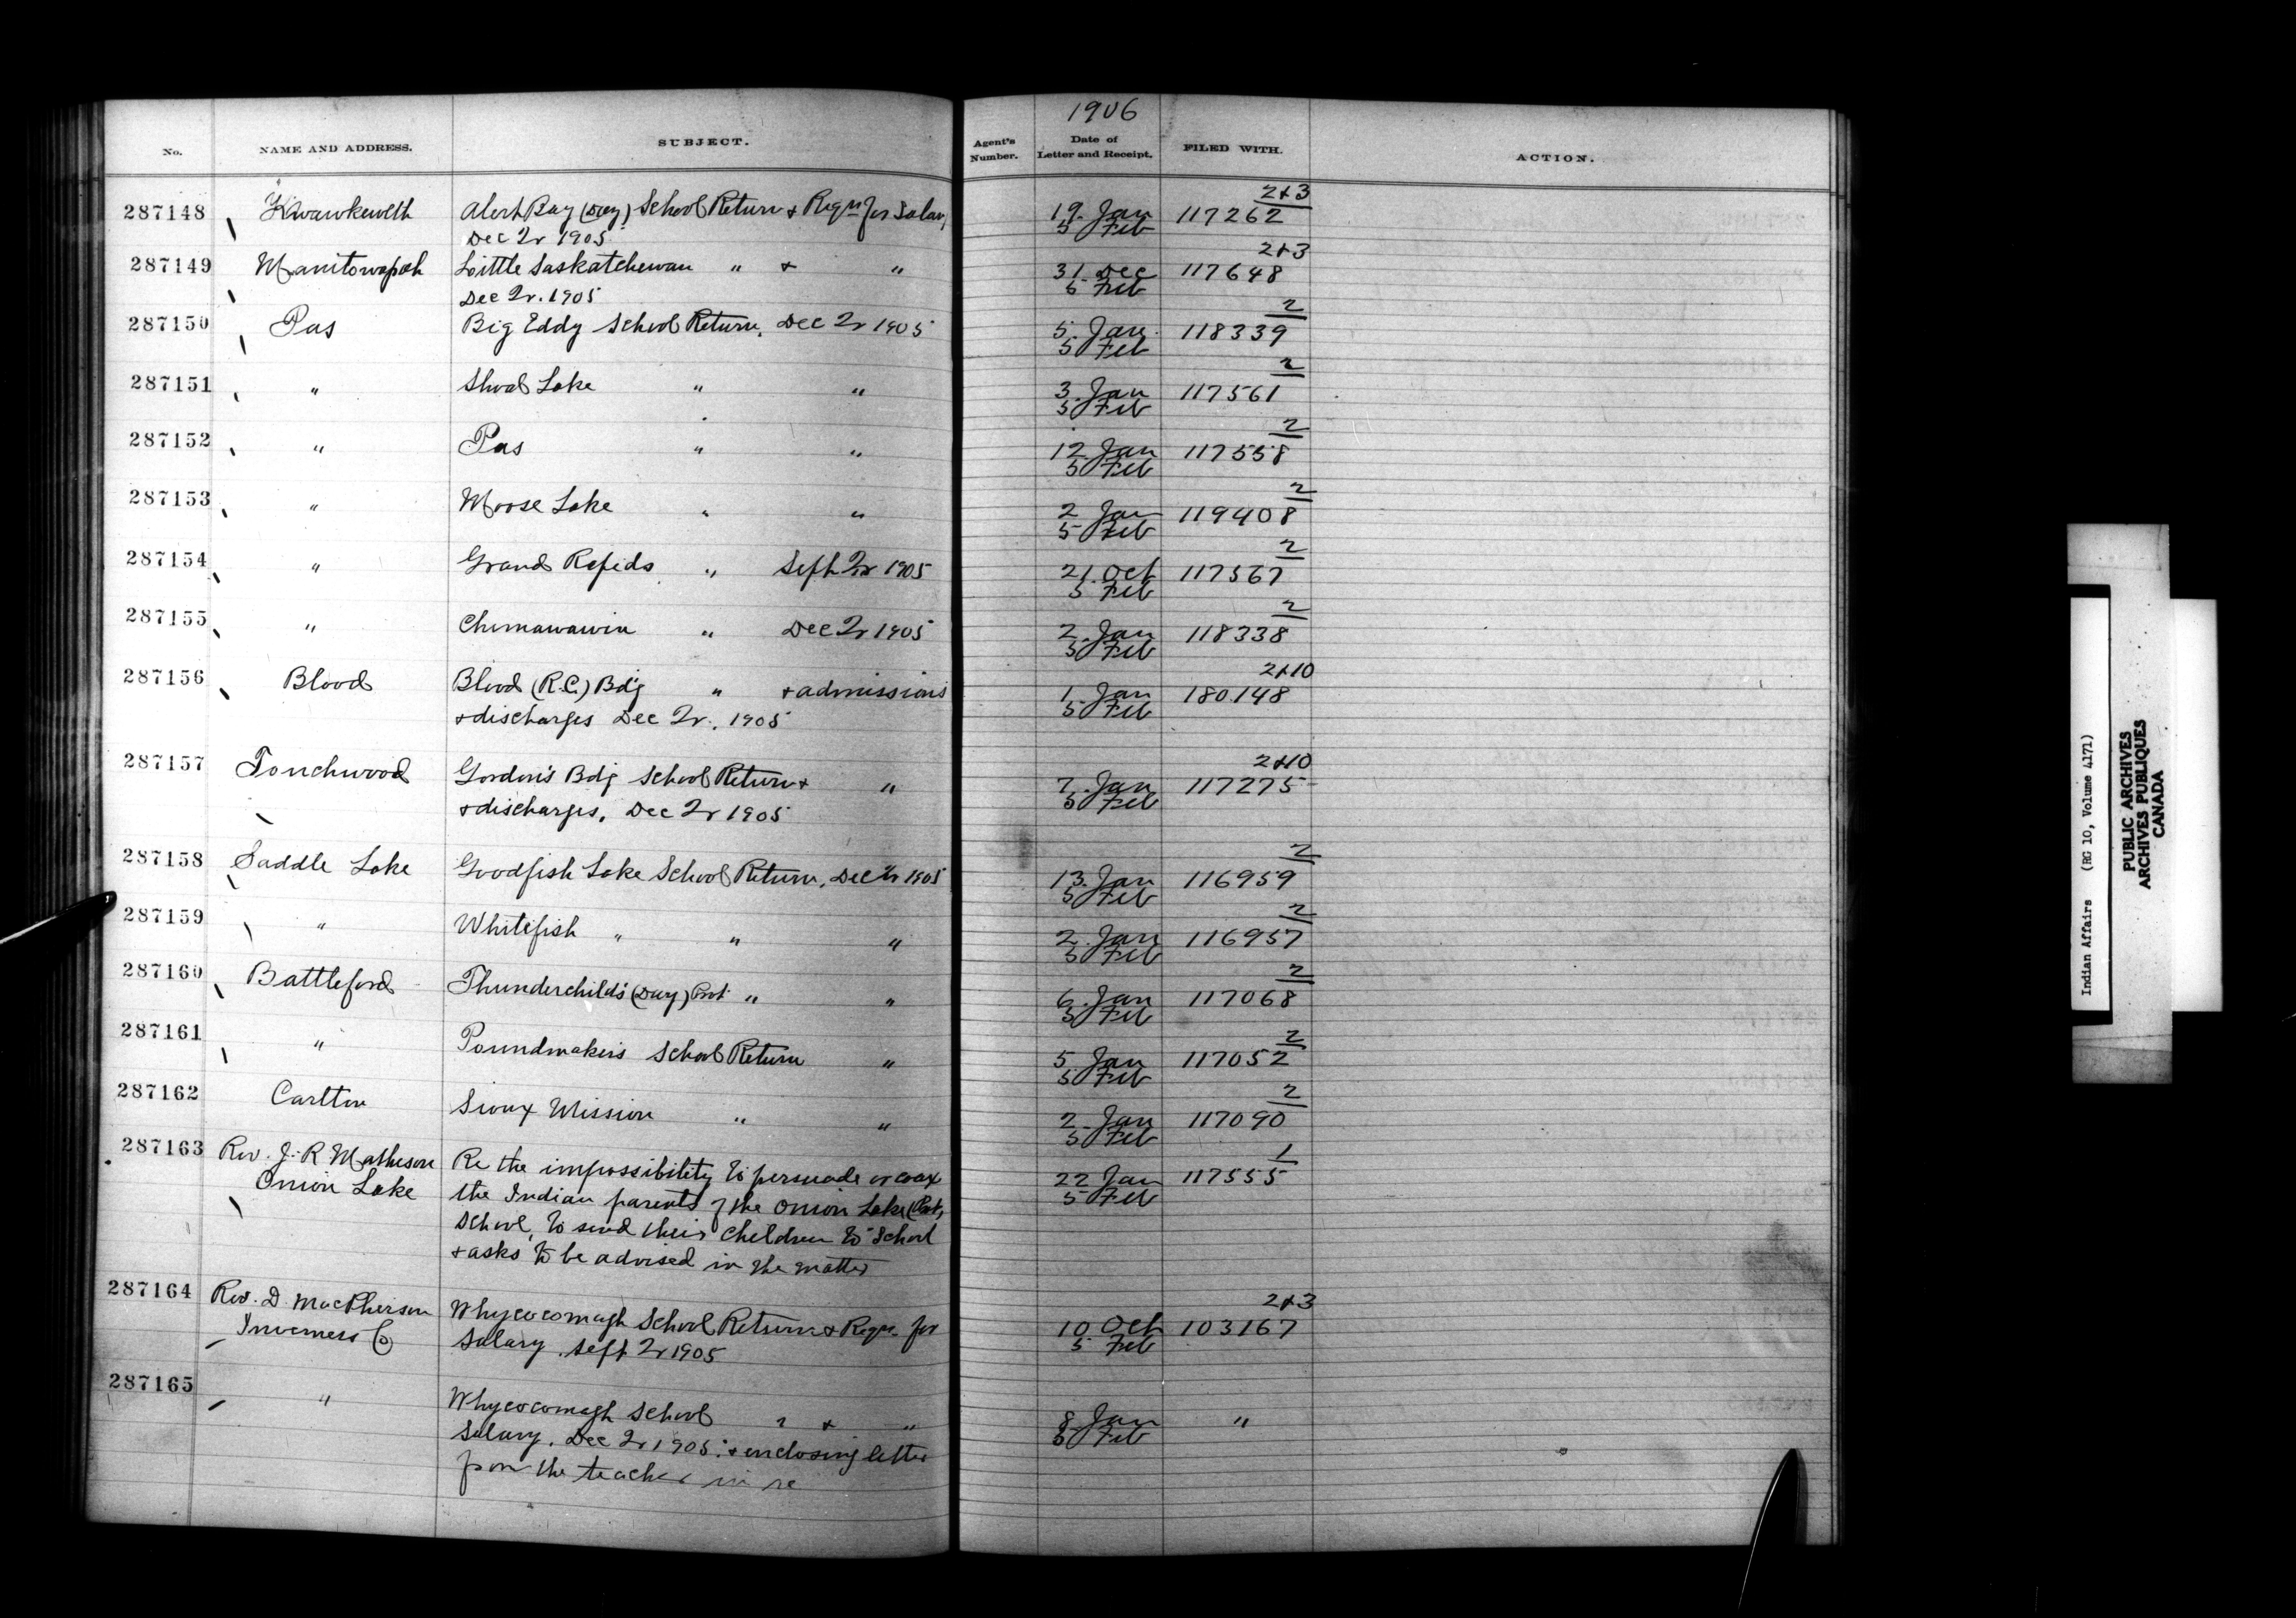 1906
No. NAME AND ADDRESS. SUBJECT. Agent's Number. Date of Letter and Receipt. FILED WITH. ACTION.
2+3
287148 Kwawkewlth Alert Bay (Day) School Return & Reqn for Salary 19. Jan 117262
Dec Qr 1905 5 Feb
2+3
287149 Manitowapah Little Saskatchewan " & " 31 Dec 117648
Dec Qr. 1905 5 Feb
2
287150 Pas Big Eddy School Return. Dec Qr 1905 5. Jan 118339
5 Feb
2
287151 " Shoal Lake " " 3. Jan 117561
5 Feb
2
287152 " Pas " " 12 Jan 117558
5 Feb
2
287153 " Moose Lake " " 2 Jan 119408
5 Feb
2
287154 " Grand Rapids " Sept Qr 1905 21. Oct 117567
5 Feb
2
287155 " Chemawawin " Dec Qr 1905 2. Jan 118338
5 Feb
2+10
287156 Blood Blood (R.C.) Bdg " & admissions 1. Jan 180148
& discharges Dec Qr. 1905 5 Feb
2+10
287157 Touchwood Gordon's Bdg School Return & " 7. Jan 117275
& discharges, Dec Qr 1905 5 Feb
2
287158 Saddle Lake Goodfish Lake School Return, Dec Qr 1905 13. Jan 116959
5 Feb
2
287159 " Whitefish " " " 2. Jan 116957
5 Feb
2
287160 Battleford Thunderchild's (Day) Prot " " 6. Jan 117068
5 Feb
2
287161 " Poundmaker's School Return " 5 Jan 117052
5 Feb
2
287162 Carlton Sioux Mission " " 2 Jan 117090
5 Feb
1
287163 Rev. J. R Matheson Re the impossibility to persuade or coax 22 Jan 117555
Onion Lake the Indian parents of the Onion Lake (Prot) 5 Feb
School, to send their children to School
& asks to be advised in the matter
2+3
287164 Rev. D. MacPherson Whycocomagh School Return & Reqn. for 10 Oct 103167
Inverness Co Salary. Sept Qr 1905 5 Feb
287165 " Whycocomagh School " & " 8 Jan "
Salary. Dec Qr 1905. & enclosing letter 5 Feb
from the teacher in re
Indian Affairs (RG 10, Volume 4171)
PUBLIC ARCHIVES
ARCHIVES PUBLIQUES
CANADA